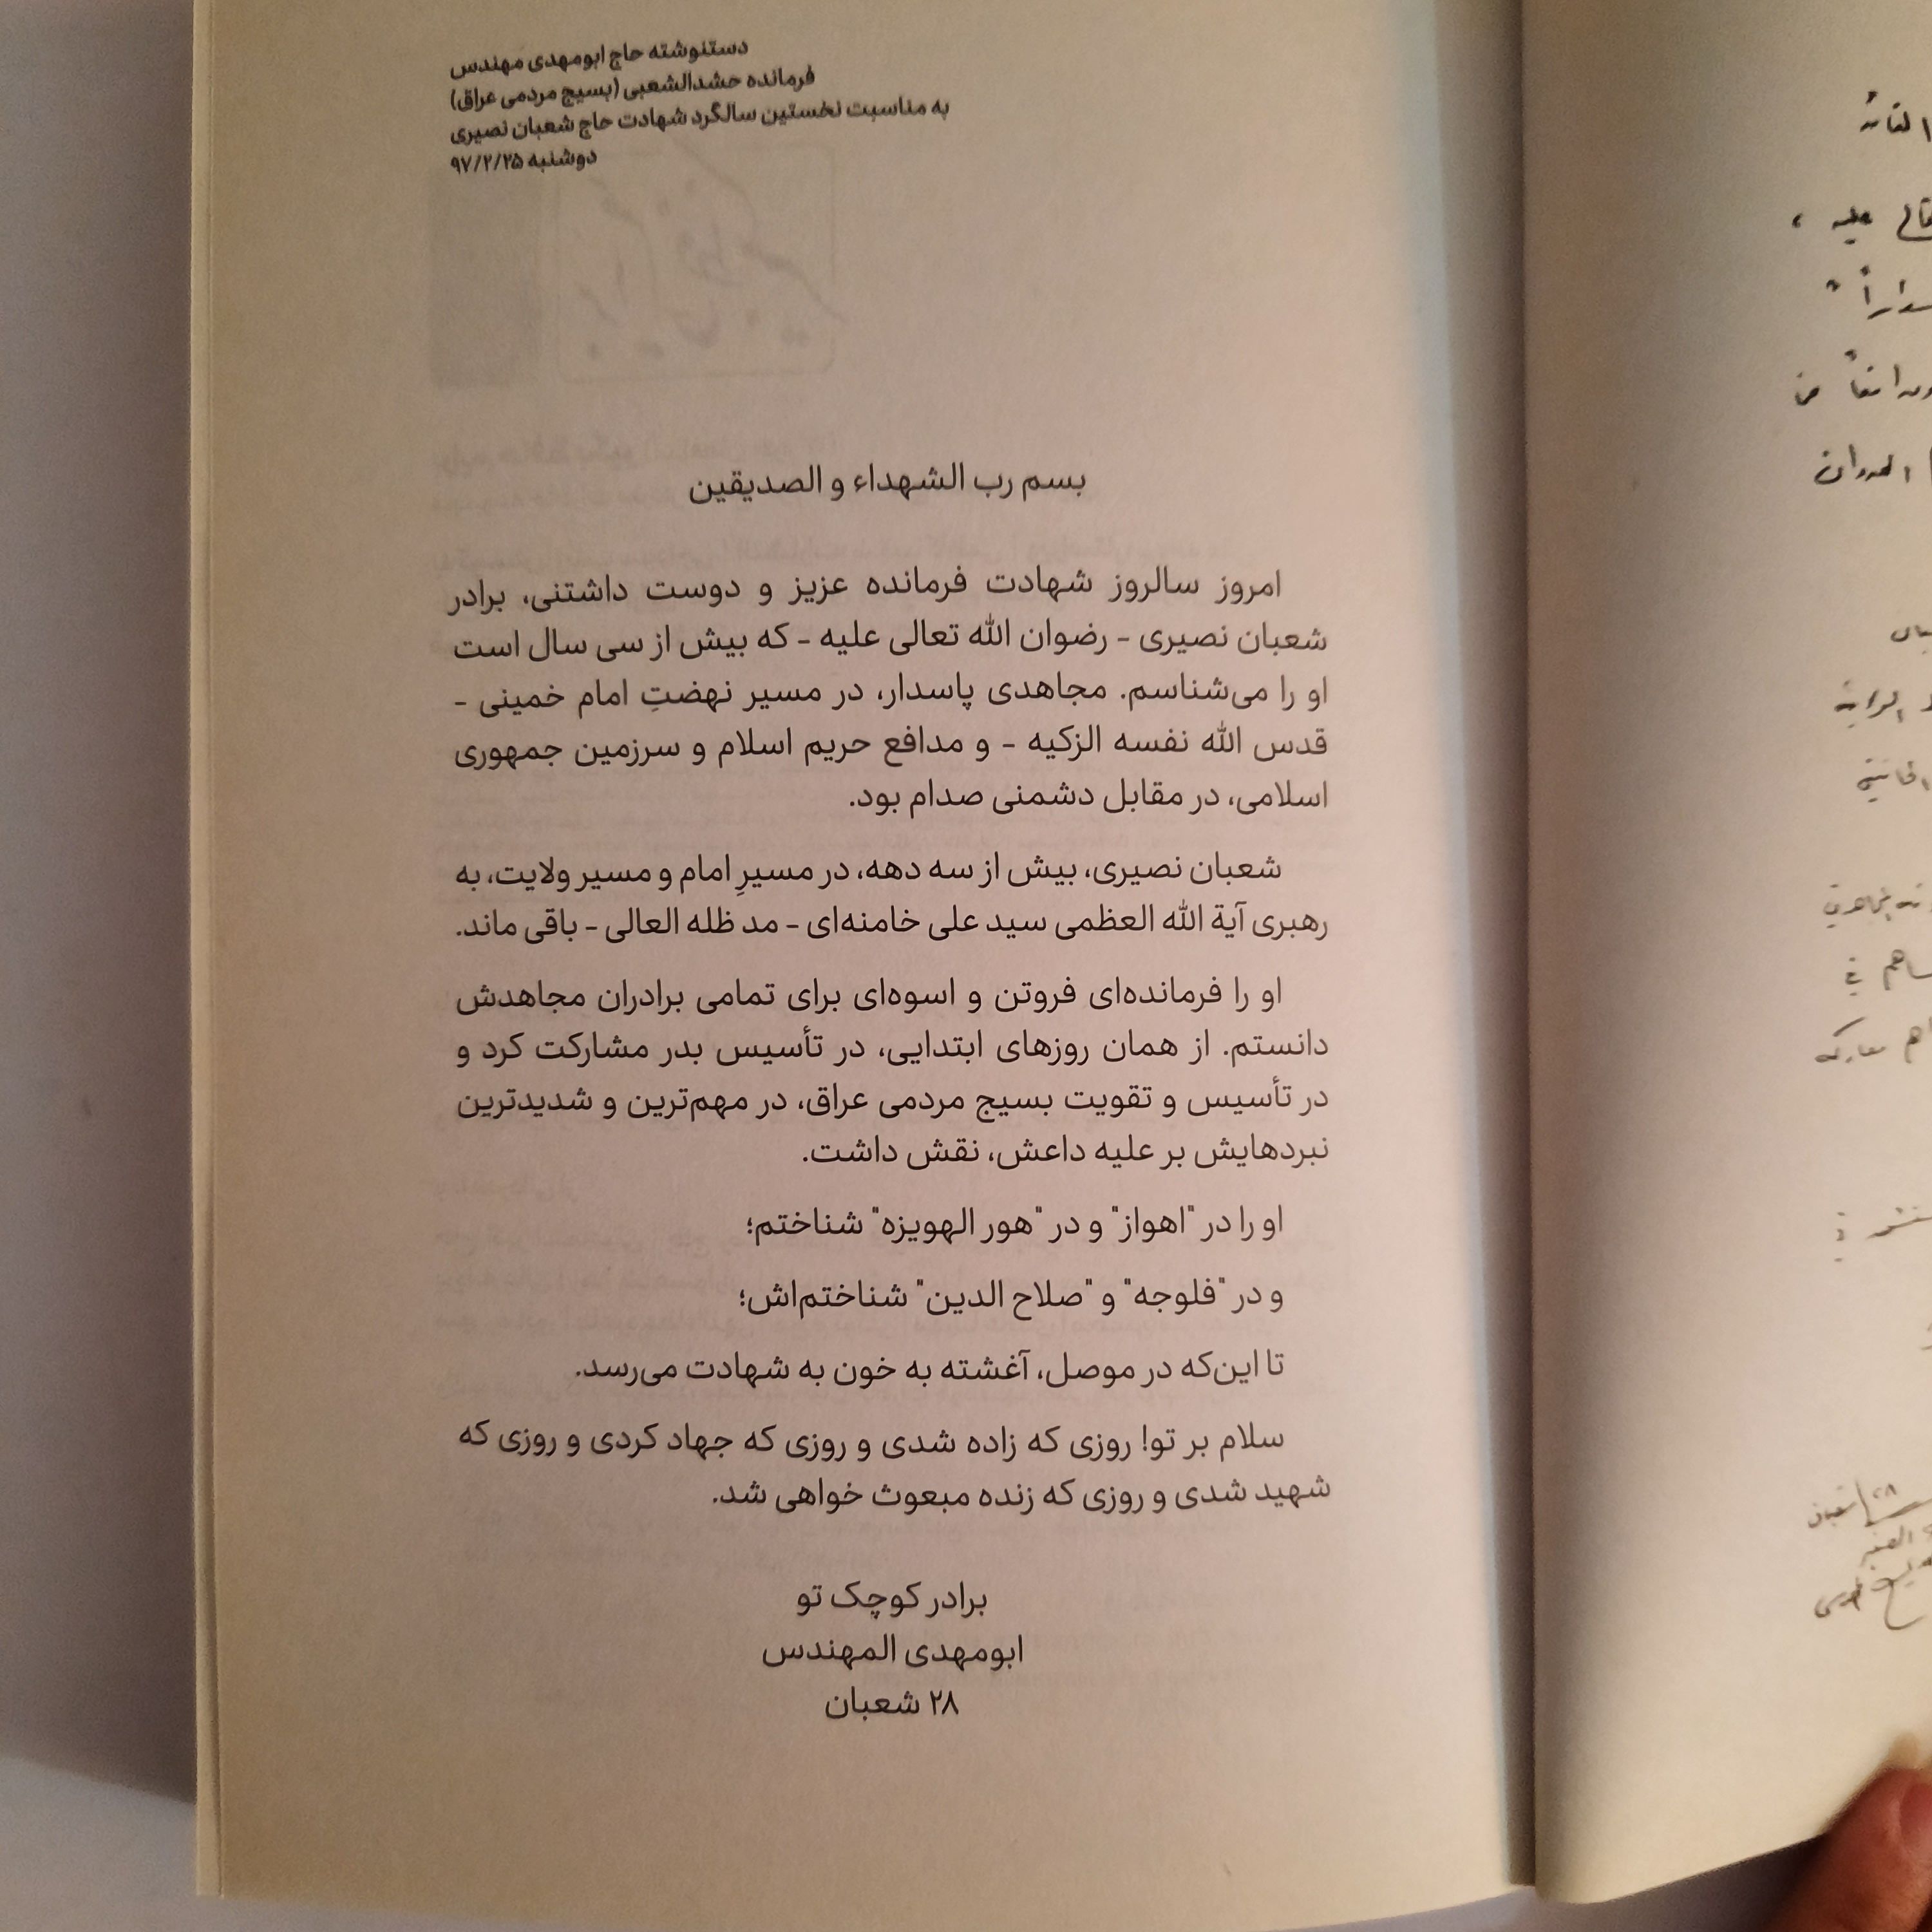 دستنوشته حاج ابومهدی مهندس
فرمانده حشدالشعبی (بسیج مردمی عراق)
به مناسبت نخستین سالگرد شهادت حاج شعبان نصیری
دوشنبه ۹۷/۲/۲۵
بسم رب الشهداء و الصدیقین
امروز سالروز شهادت فرمانده عزیز و دوست داشتنی، برادر
شعبان نصیری - رضوان الله تعالی علیه - که بیش از سی سال است
او را می‌شناسم. مجاهدی پاسدار، در مسیر نهضتِ امام خمینی -
قدس الله نفسه الزکیه - و مدافع حریم اسلام و سرزمین جمهوری
اسلامی، در مقابل دشمنی صدام بود.
شعبان نصیری، بیش از سه دهه، در مسیرِ امام و مسیر ولایت، به
رهبری آیة الله العظمی سید علی خامنه‌ای - مد ظله العالی - باقی ماند.
او را فرمانده‌ای فروتن و اسوه‌ای برای تمامی برادران مجاهدش
دانستم. از همان روزهای ابتدایی، در تأسیس بدر مشارکت کرد و
در تأسیس و تقویت بسیج مردمی عراق، در مهم‌ترین و شدیدترین
نبردهایش بر علیه داعش، نقش داشت.
او را در "اهواز" و در "هور الهویزه" شناختم؛
و در "فلوجه" و "صلاح الدین" شناختم‌اش؛
تا این‌که در موصل، آغشته به خون به شهادت می‌رسد.
سلام بر تو! روزی که زاده شدی و روزی که جهاد کردی و روزی که
شهید شدی و روزی که زنده مبعوث خواهی شد.
برادر کوچک تو
ابومهدی المهندس
۲۸ شعبان
علیه ،
ساهم في